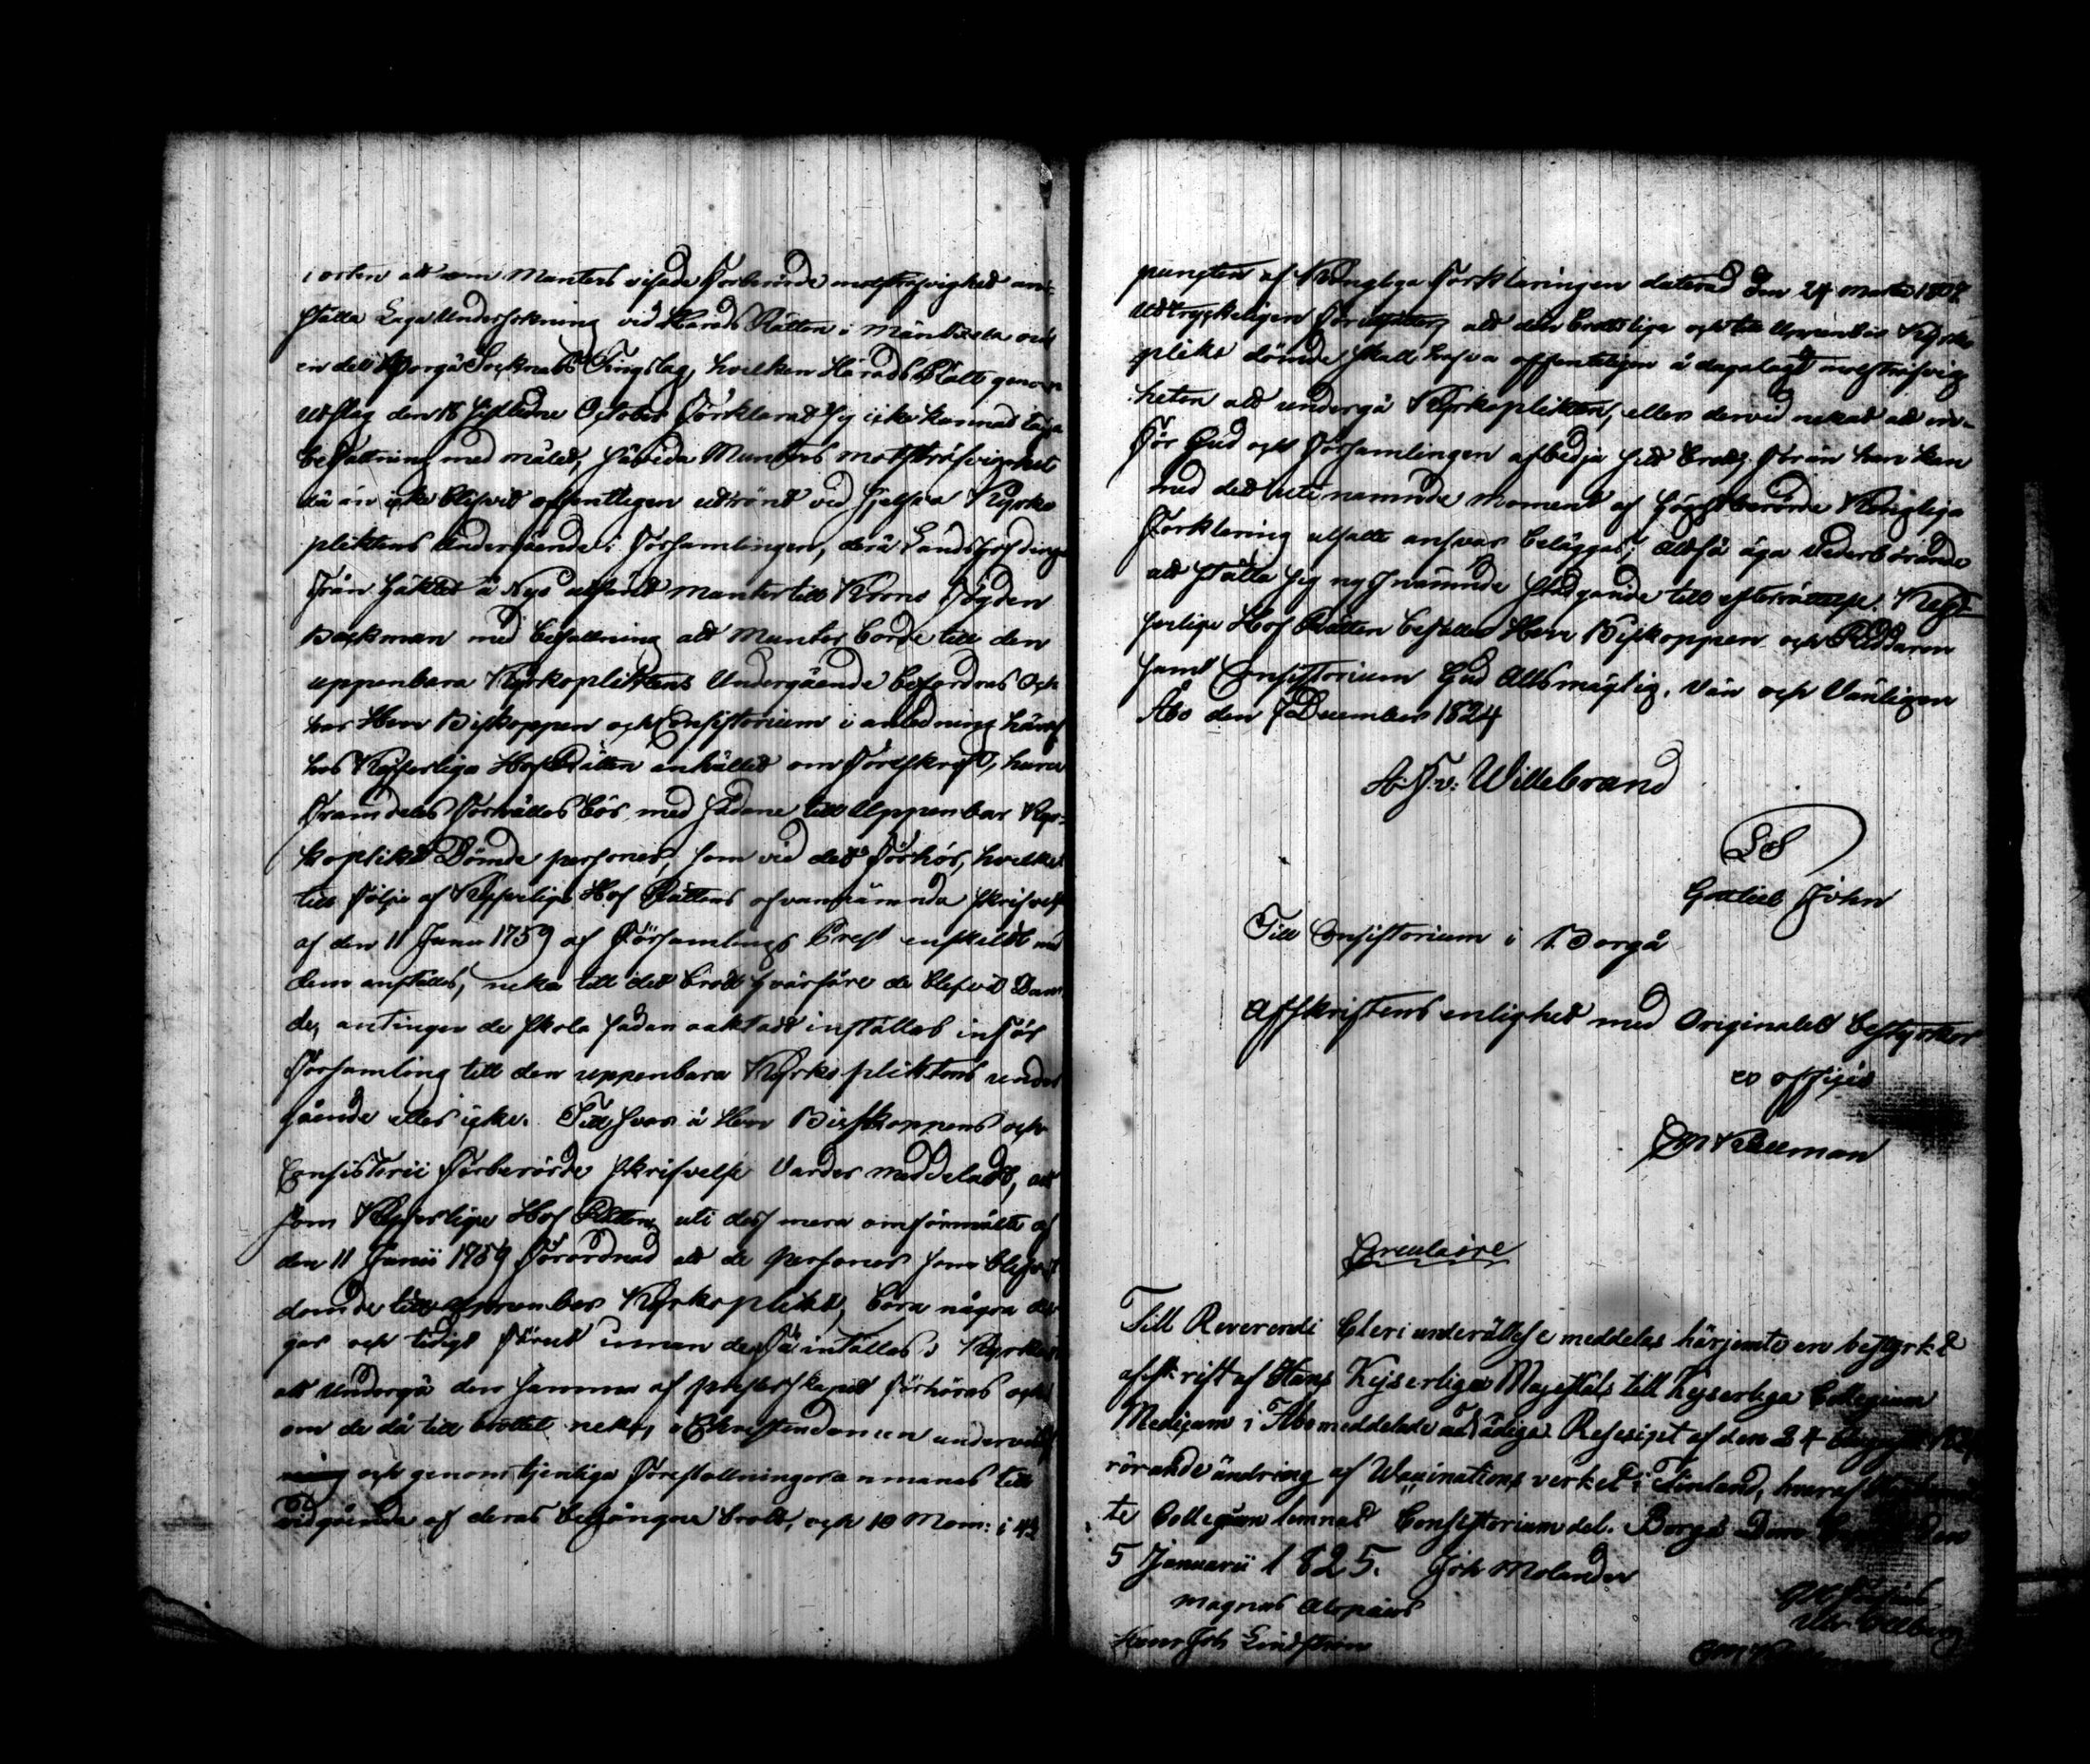 orten att om Munters visade förberörde motsträfvighet an-
ställa Laga Undersökning vid Härads Rätten i Mäntsälä och
en del Borgå Socknabs Tingslag, hvilken Härads Rätt genom
utslag den 18 sistledne October förklarat sig icke kunnat taga
befattning med målet, såvida Munters motsträfvighet
då än icke blifvit offentligen utrönt vid sjelfva Kyrko
pliktens Undergående i församlingen, derå Landshöfdinge
från häktet å nyo utsändt Munter till Krono Fogden
Backman med befallning att Munter borde till den
uppenbara Kyrkopliktens Undergående befordras och
har Herr Biskoppen och Consistorium i anledning häraf
hos Kejserliga Hof Rätten anhållit om föreskrift, huru
framdeles förhållas bör med sådane till Uppenbar Kyr-
koplikt Dömde personer, som vid det förhör, hvilket
till följe af Kejserliga Hof Rättens ofvannämnda skrifvelse
af den 11 Junii 1759 af Församlings Prest enskildt med
dem anställes, neka till det brott hvarföre de blifvit Döm-
de, antingen de skola sådan oaktadt inställas inför
församling till den uppenbara Kyrkopliktens under
gående eller icke. Till svar å Herr Biskoppens och
Consistorii förberörde skrifvelse Varder meddeladt, att
som Kejserliga Hof Rätten uti dess mera omförmälte af
den 11 Junii 1759 förordnad att de personer som blifvit
dömde till uppenbar Kyrkoplikt, böra några da-
gar och tidigt förut innan de få intällas i Kyrkan
att Undergå den samma af presterskapet förhöras och
om de då till brottet neka, i Christendomen undervis
och genom tjenliga föreställningar anmanas till
vidgående af deras begångne brott, och 10 Mom: i 4
puncten af Kongliga Förklaringen daterad den 24 Martii 1807
Uttryckeligen författer att den brottslige och till Uppenbar Kyrko
plikt dömde skall hafva offentligen å dagalagt motsträfvig
heten att undergå Kyrkoplikten, eller dervid nekat att in-
för Gud och församlingen afbedja sitt brott, förän han kan
med det uti nämnde moment af högstberörde Kongliga
Förklaring utsatte ansvar beläggas; Altså äga Vederbörande
att ställa sig nyssnämnde stadgande till efterrättelse. Kejs-
serliga Hof Rätten befaller Herr Biskoppen och Riddaren
samt Consistorium Gud Allsmägtig, Vän och Vänligen
Åbo den 7 December 1824
Willebrand
Gottlieb John
Till Consistorium i Borgå
Afskriftens enlighet med Originalet bestyrker
ex officio
Circulaire
Till Reverendi Cleri underättelse meddelas härjemte en bestyrkt
afskrift af Hans Kejserliga Majestäts till Kejserliga Collegium
Medicum i Åbo meddelade nådiga Rescript af den 24
rörande ändring af Waccinations verket i Finland, hvaraf
te Collegium lemnat Consistorium del. Borgå Dom den
5 Januarii 1825. Joh Molander
Magnus Alopæus
Joh Lindström